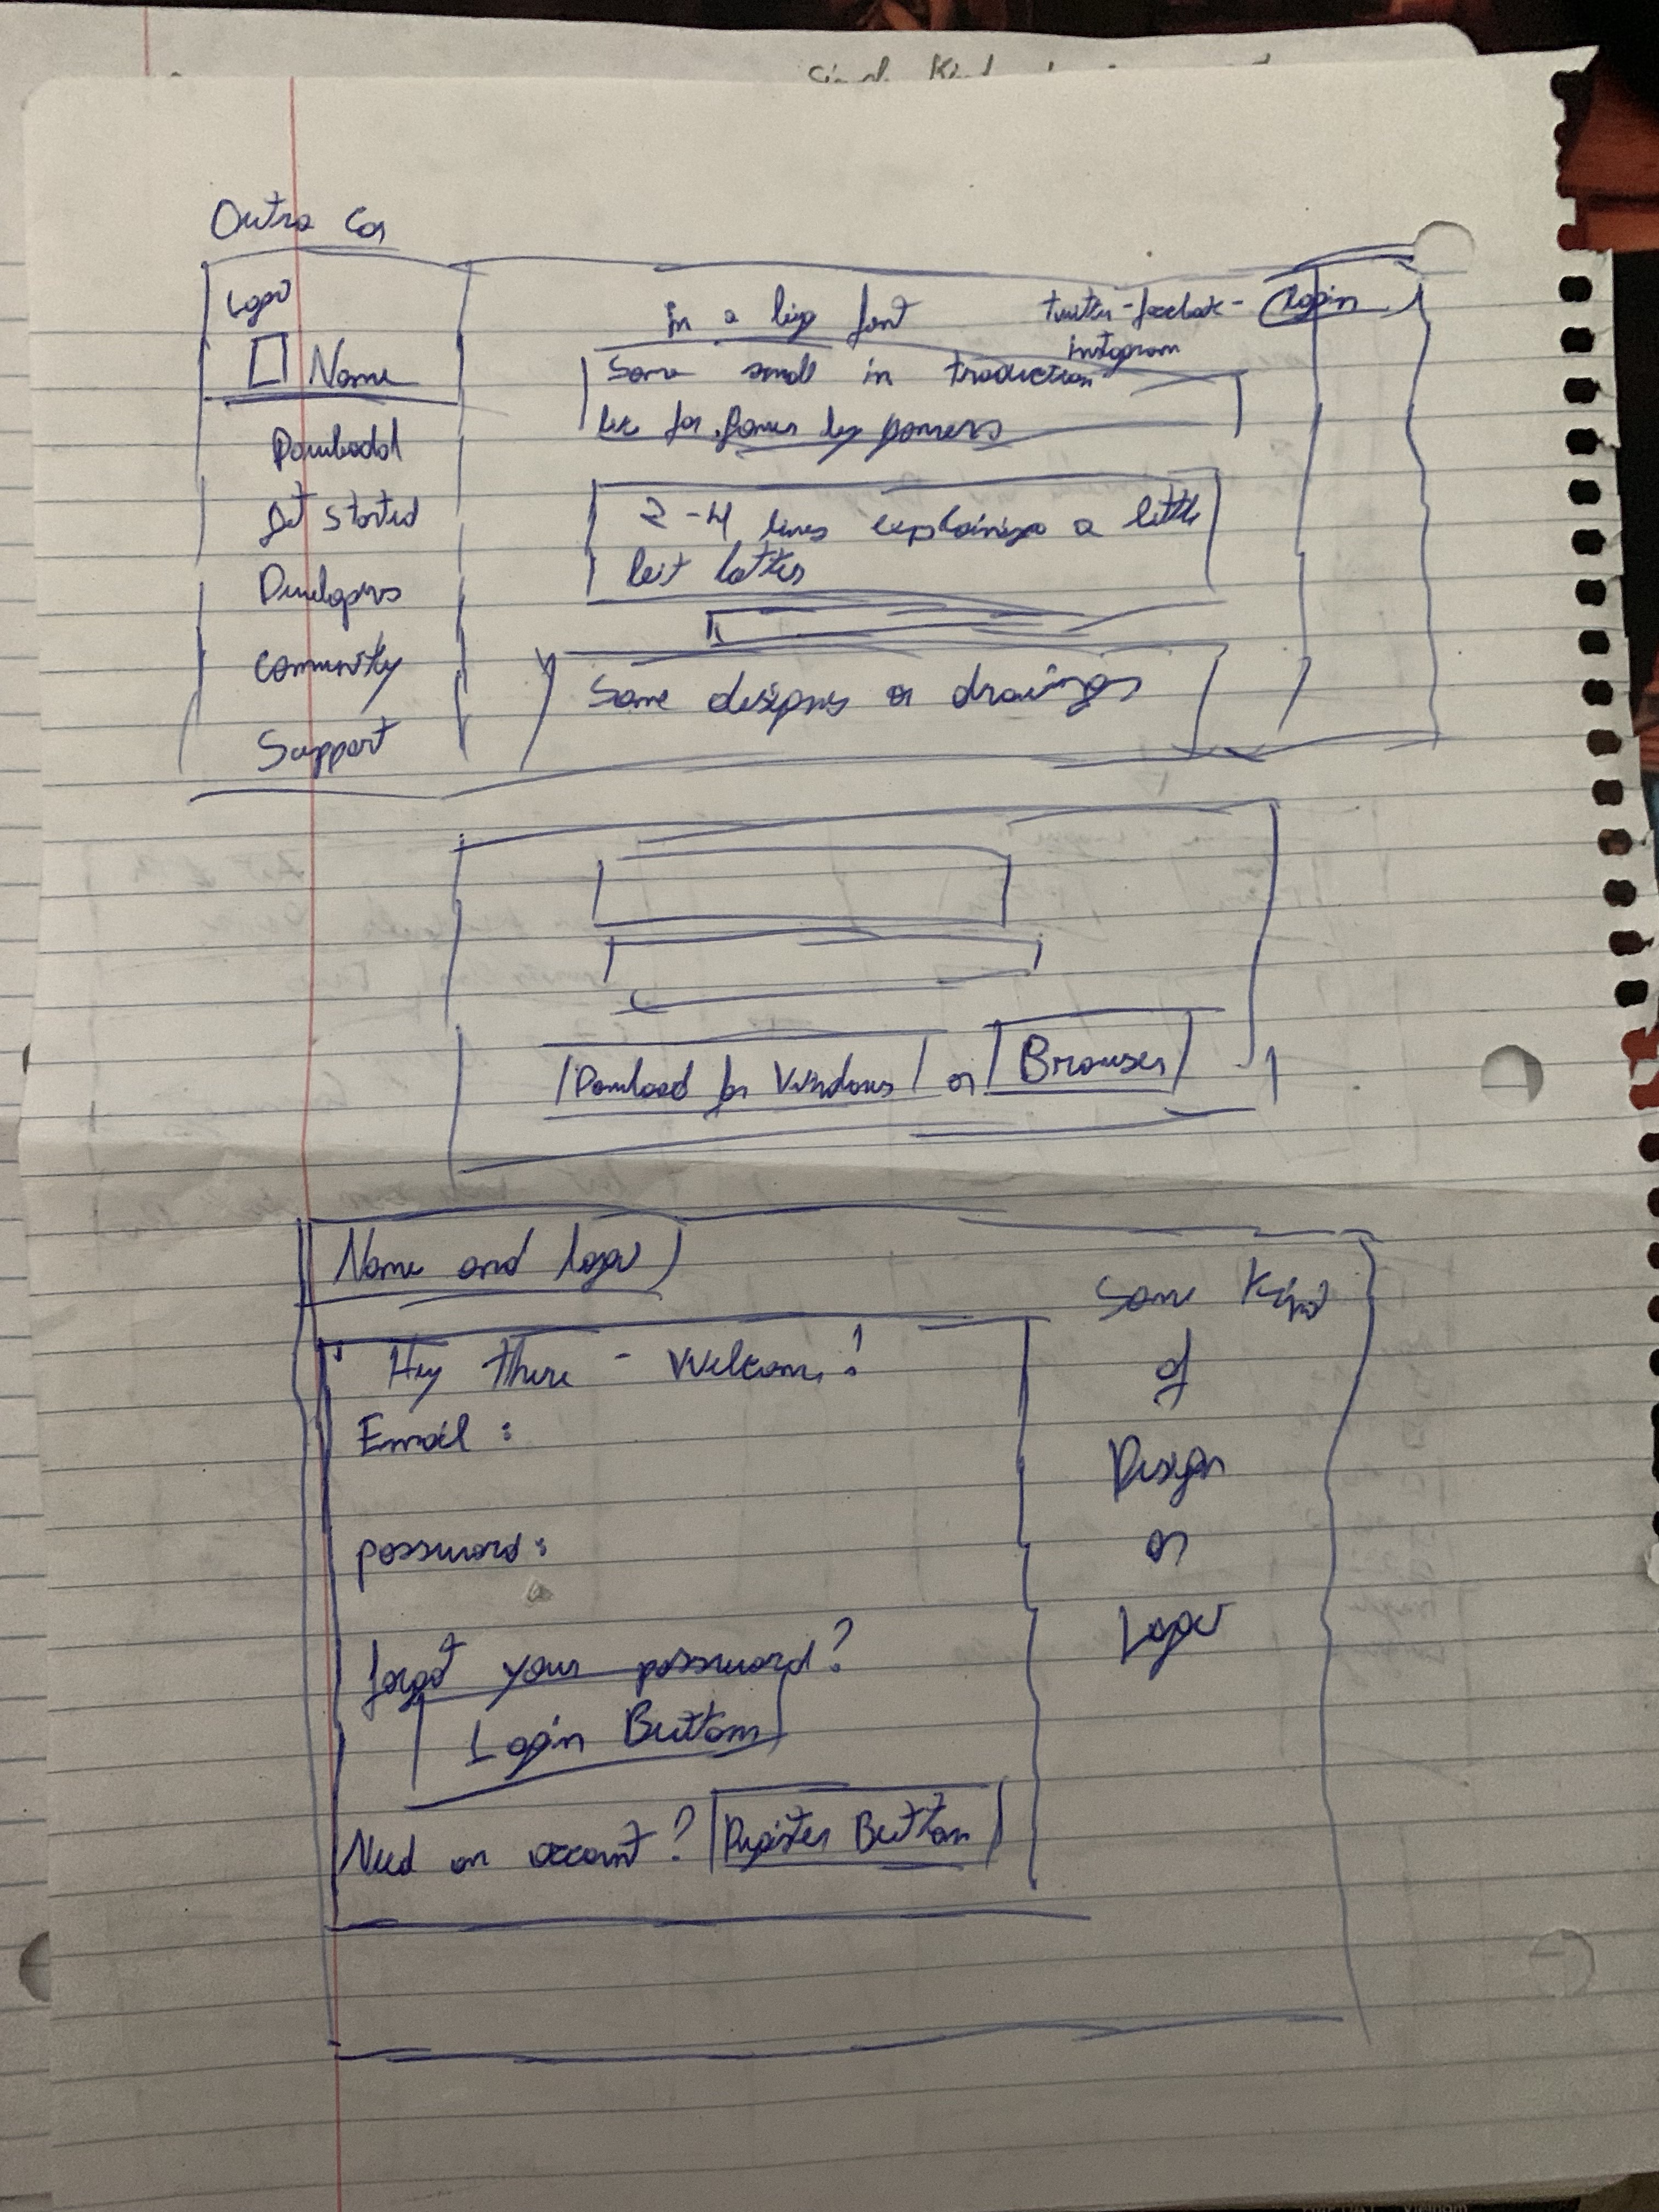 Outra
Logo
Name
Download
Get Started
Developers
Comunity
Support
In a big font
twitter - facebook - Login
instagram
Some small in troduction
like for. Gamers by gamers
2-4 lines explaining a little
bit latter
Some designs or drawings
Download for Windows or Browser
Name and logo
Hey there - Welcome!
Email :
password:
forgot your password?
Login Button
Need an account? Register Button
Some Kind
of
Design
or
Logo